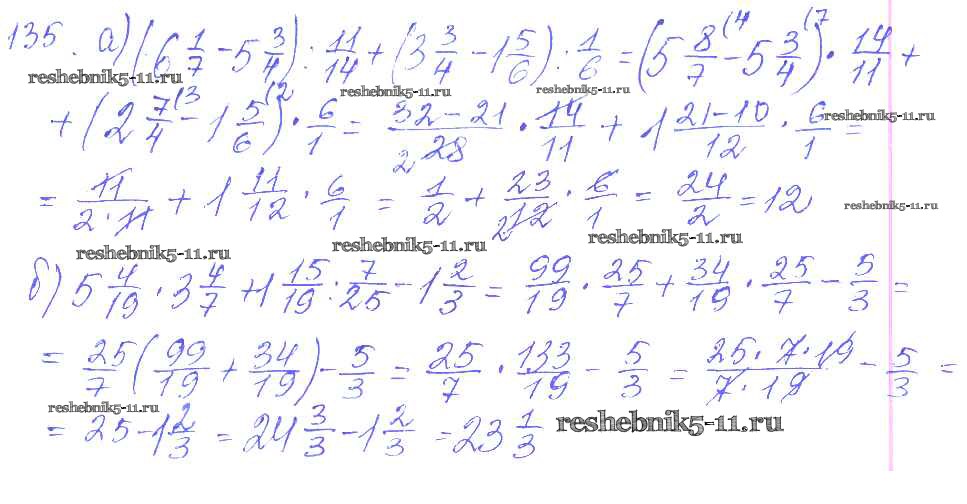 135. а) (6 1/7 - 5 3/4) : 11/14 + (3 3/4 - 1 5/6) : 1/6 = (5 8/7 (4 - 5 3/4 (7) · 14/11 +
reshebnik5-11.ru reshebnik5-11.ru reshebnik5-11.ru
+ (2 7/4 (3 - 1 5/6 (2) · 6/1 = 32-21/28 2 · 14/11 + 1 21-10/12 · 6/1 =
reshebnik5-11.ru
= 11/2·11 + 1 11/12 · 6/1 = 1/2 + 23/12 2 · 6/1 = 24/2 = 12
reshebnik5-11.ru
reshebnik5-11.ru reshebnik5-11.ru reshebnik5-11.ru
б) 5 4/19 · 3 4/7 + 1 15/19 : 7/25 - 1 2/3 = 99/19 · 25/7 + 34/19 · 25/7 - 5/3 =
= 25/7 (99/19 + 34/19) - 5/3 = 25/7 · 133/19 - 5/3 = 25·7·19/7·19 - 5/3 =
reshebnik5-11.ru
= 25 - 1 2/3 = 24 3/3 - 1 2/3 = 23 1/3
reshebnik5-11.ru